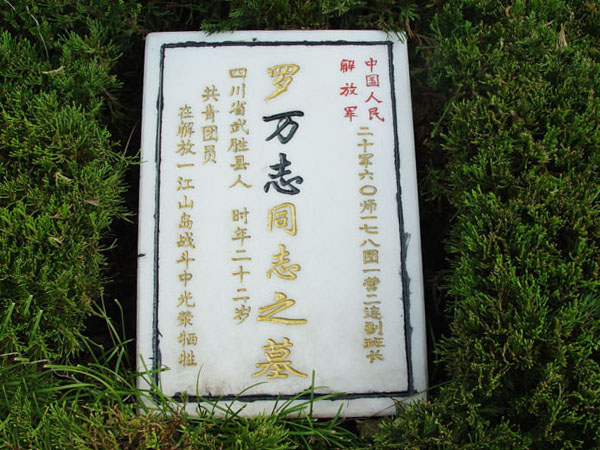 中国人民
解放军
二十军六〇师一七八团一营二连副班长
罗万志同志之墓
四川省武胜县人 时年二十二岁
共青团员
在解放一江山岛战斗中光荣牺牲